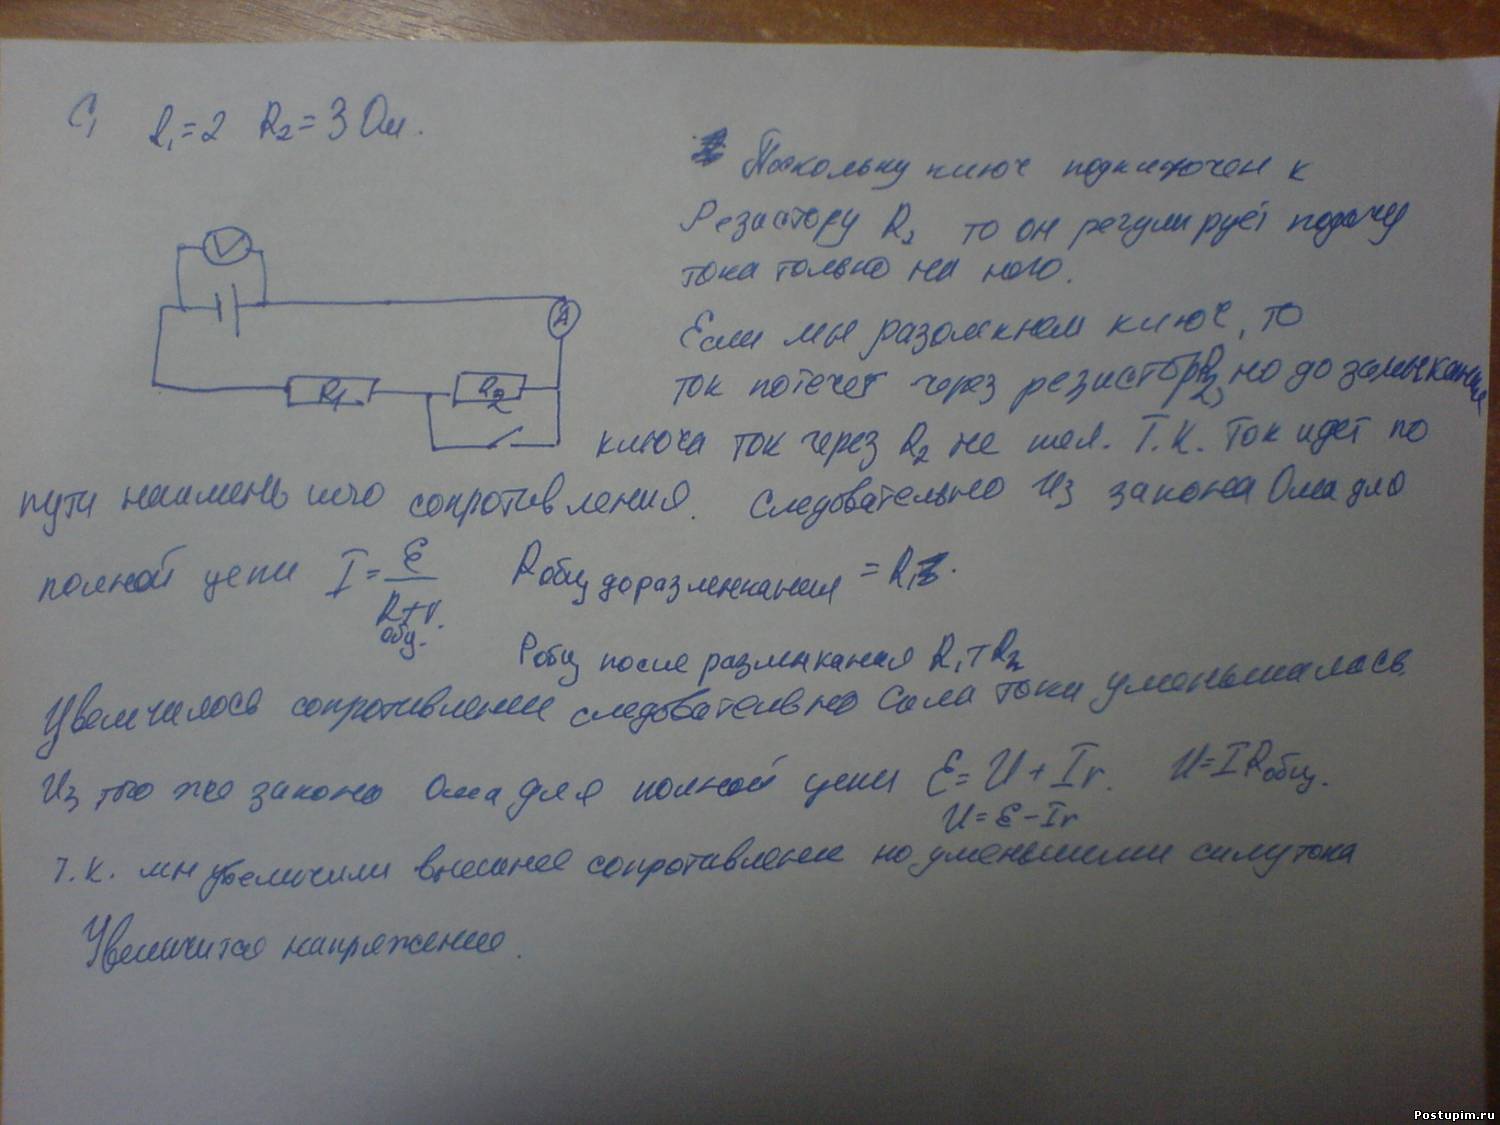 C1 R1=2 R2=3 Ом.
Поскольку ключ подключен к
Резистору R2 то он регулирует подачу
тока только на него.
V
A
R1
R2
Если мы разомкнем ключ, то
ток потечет через резистор R2, но до замыкания
ключа ток через R2 не шел. Т.К. Ток идет по
пути наименьшего сопротивления. Следовательно Из закона Ома для
полной цепи I = ℰ/(Rобщ.+r.) Rобщ до размыкания = R1.
Rобщ после размыкания R1+R2
Увеличилось сопротивление следовательно Сила тока уменьшилась.
Из того же закона Ома для полной цепи ℰ=U+Ir. U=IRобщ.
U=ℰ-Ir
Т.к. мы увеличили внешнее сопротивление но уменьшили силу тока
Увеличится напряжение.
Postupim.ru